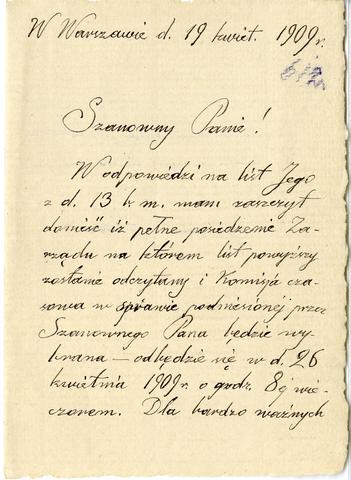 W Warszawie d. 19 kwiet. 1909 r.
Szanowny Panie!
W odpowiedzi na list Jego
z d. 13 b m. mam zaszczyt
donieść iż pełne posiedzenie Za-
rządu na którem list powyższy
zostanie odczytany i Komisja cza-
sowa w sprawie podniesionej przez
Szanownego Pana będzie wy-
brana — odbędzie się w d. 26
kwietnia 1909 r. o godz. 8ej wie-
czorem. Dla bardzo ważnych